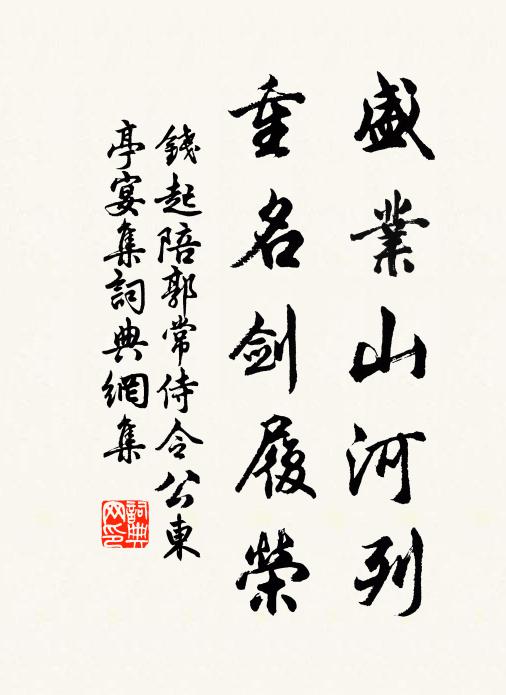 盛業山河列
重名劍履榮
錢起陪郭常侍令公東
亭宴集詞典網集
詞典
网印